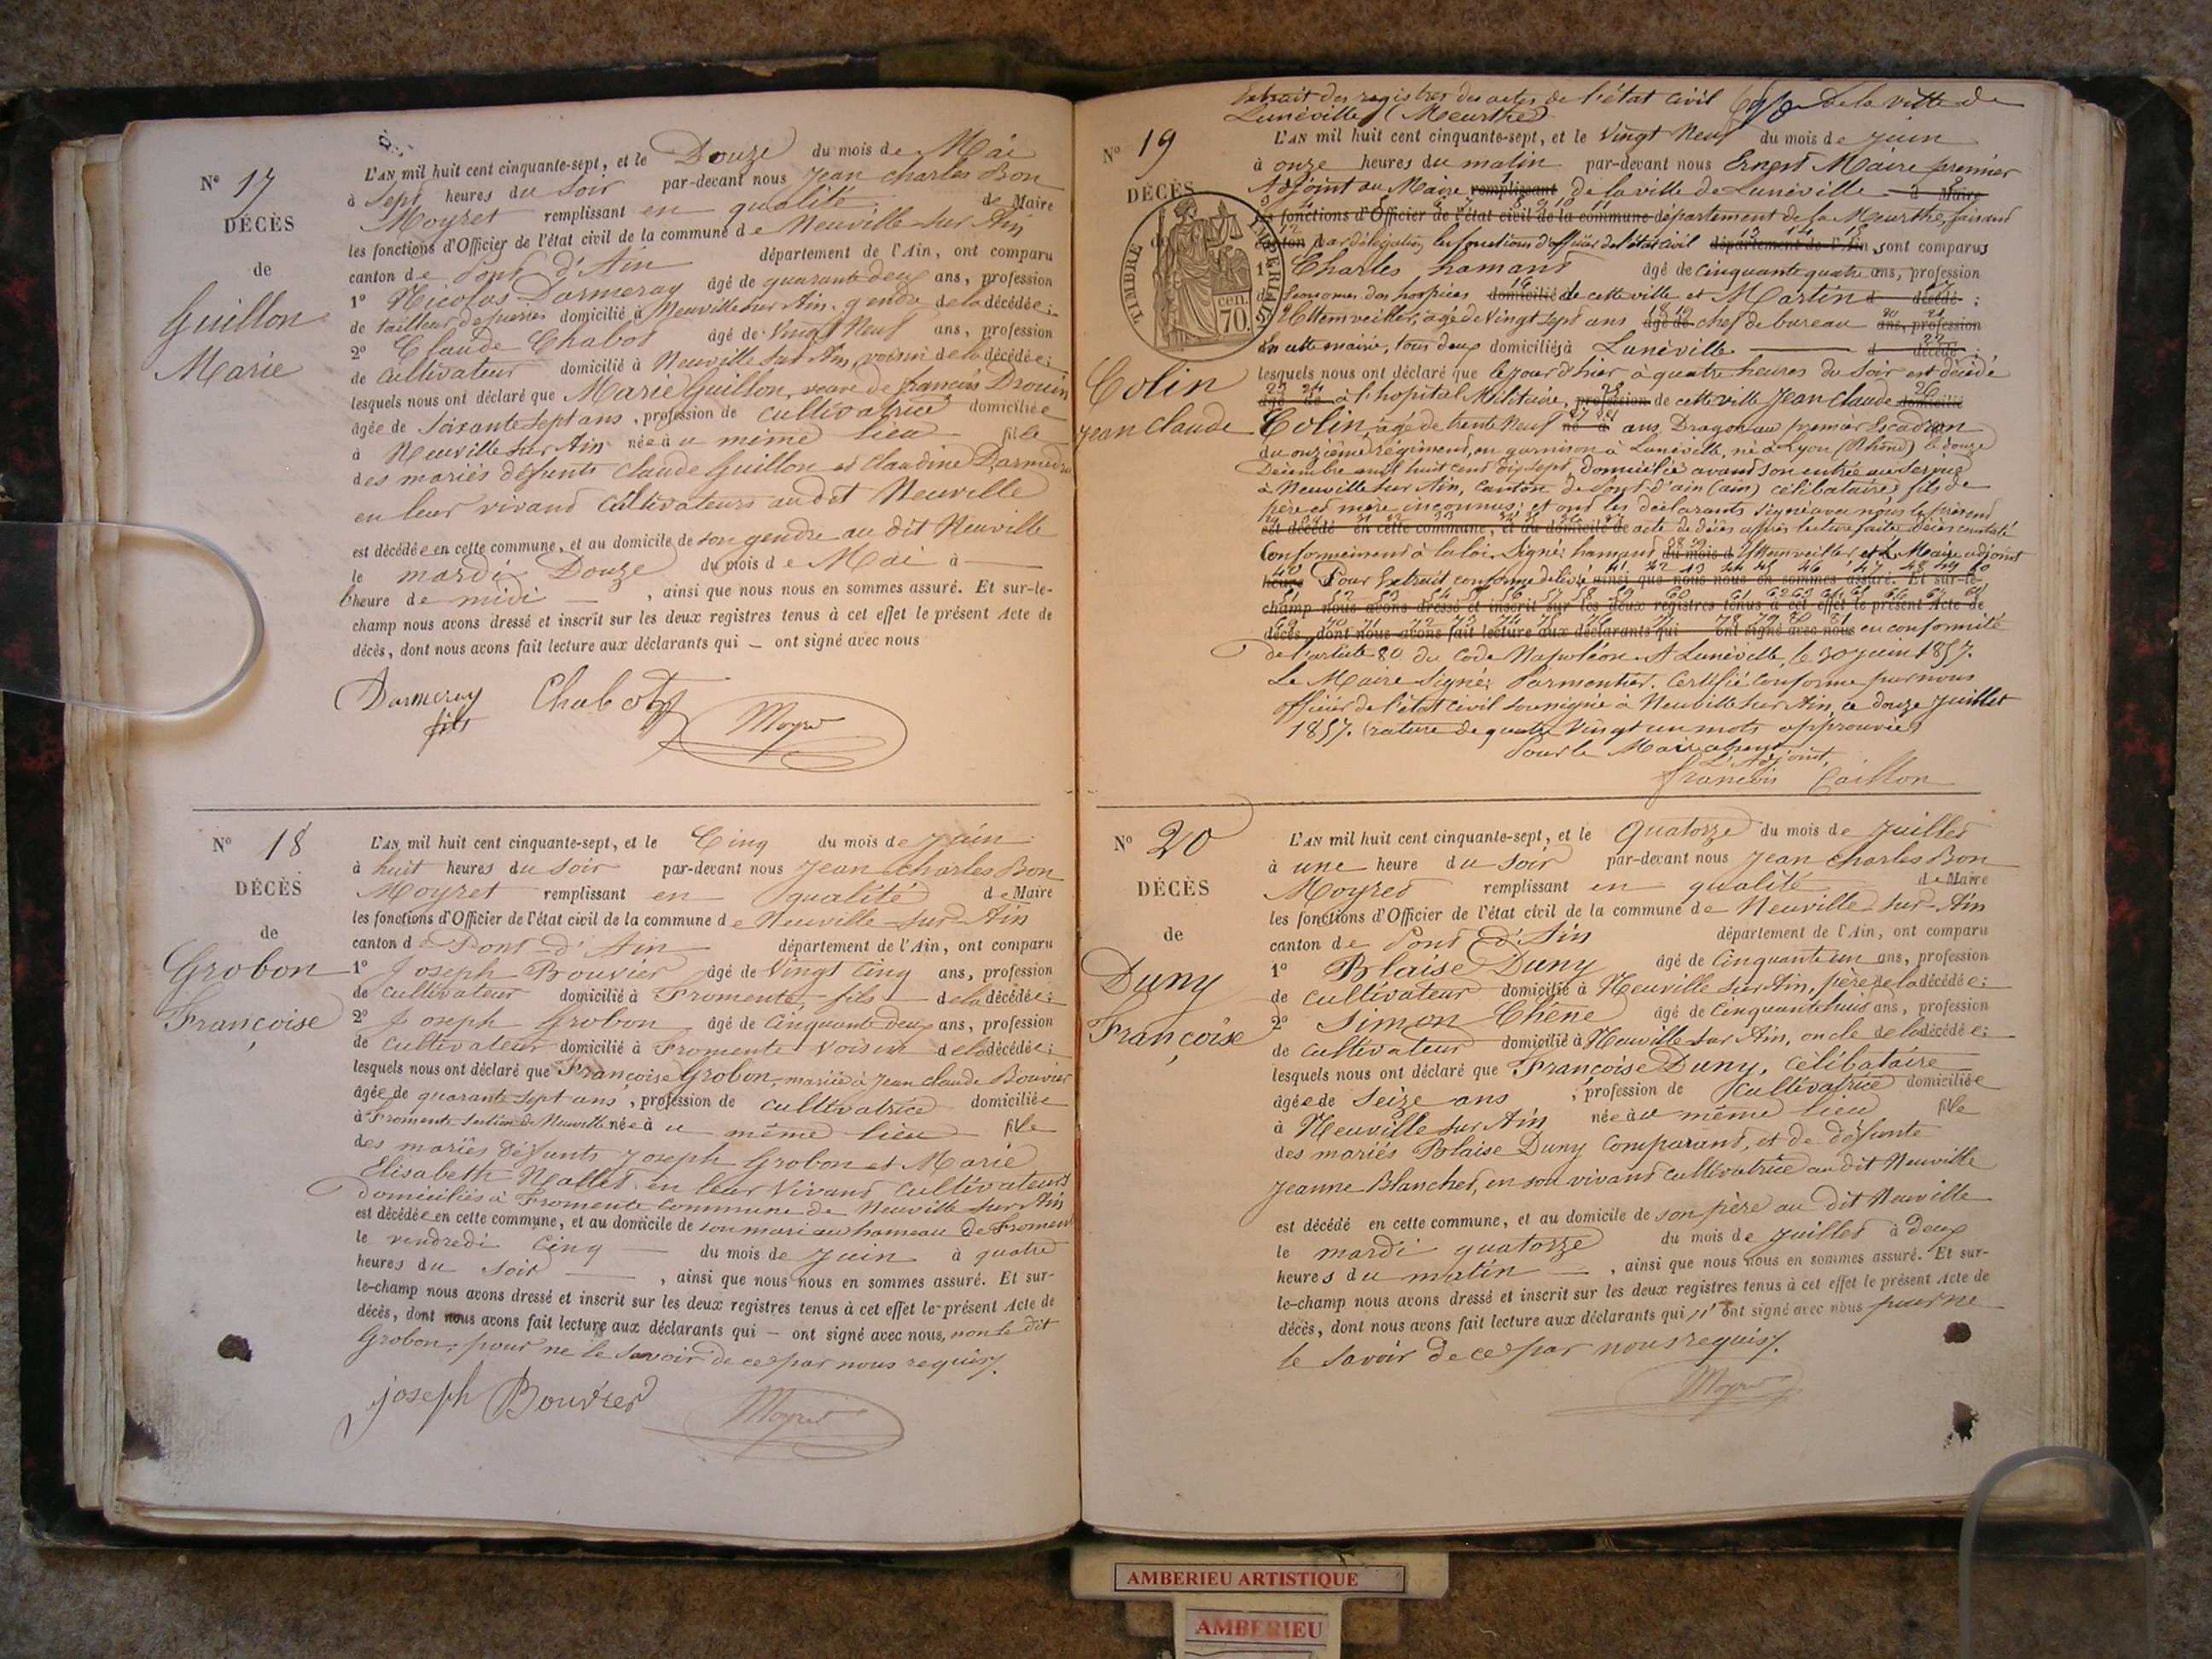 N° 17
DÉCÈS
de
Guillon
Marie
L'AN mil huit cent cinquante-sept, et le Douze du mois de Mai
à sept heures du soir par-devant nous Jean Charles Bon
Moyret remplissant en qualité de Maire
les fonctions d'Officier de l'état civil de la commune de Neuville sur Ain
canton de Pont d'Ain département de l'Ain, ont comparu
1° Nicolas Darmeray âgé de quarante deux ans, profession
de tailleur de pierres domicilié à Neuville sur Ain, gendre de la décédée;
2° Claude Chabot âgé de Vingt Neuf ans, profession
de Cultivateur domicilié à Neuville sur Ain, voisin de la décédée;
lesquels nous ont déclaré que Marie Guillon, veuve de françois Drouin
âgée de Soixante sept ans, profession de cultivatrice domiciliée
à Neuville sur Ain née au même lieu fille
des mariés défunts Claude Guillon et Claudine
en leur vivant Cultivateurs audit Neuville
est décédée en cette commune, et au domicile de son gendre au dit Neuville
le mardi Douze du mois de Mai à
l'heure de midi , ainsi que nous nous en sommes assuré. Et sur-le-
champ nous avons dressé et inscrit sur les deux registres tenus à cet effet le présent Acte de
décès, dont nous avons fait lecture aux déclarants qui — ont signé avec nous
Darmeray Chabot Moyret
fils
N° 18
DÉCÈS
de
Grobon
Françoise
L'AN mil huit cent cinquante-sept, et le Cinq du mois de Juin
à huit heures du Soir par-devant nous Jean Charles Bon
Moyret remplissant en qualité de Maire
les fonctions d'Officier de l'état civil de la commune de Neuville sur Ain
canton de Pont d'Ain département de l'Ain, ont comparu
1° Joseph Bouvier âgé de Vingt Cinq ans, profession
de cultivateur domicilié à Fromente, fils de la décédée;
2° Joseph Grobon âgé de Cinquante deux ans, profession
de Cultivateur domicilié à Fromente Voisin de la décédée;
lesquels nous ont déclaré que Françoise Grobon, mariée à Jean Claude Bouvier
âgée de quarante sept ans, profession de cultivatrice domiciliée
à Fromente section de Neuville née à u même lieu fille
des mariés défunts Joseph Grobon et Marie
Elisabeth Mallet en leur Vivant Cultivateurs
domiciliés à Fromente Commune de Neuville sur Ain
est décédée en cette commune, et au domicile de son mari au hameau de Froment
le vendredi Cinq du mois de Juin à quatre
heures du Soir , ainsi que nous nous en sommes assuré. Et sur-
le-champ nous avons dressé et inscrit sur les deux registres tenus à cet effet le présent Acte de
décès, dont nous avons fait lecture aux déclarants qui — ont signé avec nous, non le dit
Grobon, pour ne le Savoir de ce par nous requis.
joseph Bouvier Moyret
Extrait des registres des actes de l'état civil de la ville de
Lunéville (Meurthe)
N° 19
DÉCÈS
TIMBRE IMPERIAL
70 cen.
Colin
Jean Claude
L'AN mil huit cent cinquante-sept, et le Vingt Neuf du mois de Juin
à onze heures du matin par-devant nous Ernest Maire premier
Adjoint au Maire remplissant de la ville de Lunéville d Maire
les fonctions d'Officier de l'état civil de la commune département de la Meurthe, faisant
canton par délégation les fonctions d'officier de l'état civil département de l'Ain, sont comparus
1° Charles hamant âgé de Cinquante quatre ans, profession
d' Econome des hospices domicilié de cette ville et Martin d décédé;
Uttenveiller, âgé de Vingt sept ans âgé de chef de bureau ans, profession
en cette mairie, tous deux domiciliés à Lunéville d décédé;
lesquels nous ont déclaré que le jour d'hier à quatre heures du Soir est décédé
âgé de à l'hopital Militaire, profession de cette ville Jean Claude domicilié
Colin, âgé de trente Neuf né à ans, Dragon au premier Escadron
du onzième régiment, en garnison à Lunéville, né à Lyon (Rhône) le douze
Décembre mil huit cent dix sept, domicilié avant son entrée au service
à Neuville sur Ain, Canton de Pont d'ain (ain) célibataire, fils de
père et mère inconnus; et ont les déclarants signé avec nous le présent
est décédé en cette commune, et au domicile de acte de décès après lecture faite, décès constaté
Conformément à la loi. Signé: hamant du mois d Uttenveiller et E. Maire adjoint
heure Pour Extrait conforme délivré ainsi que nous nous en sommes assuré. Et sur-le-
champ nous avons dressé et inscrit sur les deux registres tenus à cet effet le présent Acte de
décès, dont nous avons fait lecture aux déclarants qui ont signé avec nous en conformité
de l'article 80 du Code Napoléon. A Lunéville, le 30 juin 1857.
Le Maire Signé: Parmentier. Certifié Conforme par nous
officier de l'état civil soussigné à Neuville sur Ain, ce douze Juillet
1857. (rature de quatre Vingt un mots approuvée)
Pour le Maire absent
L'Adjoint,
françois Caillon
N° 20
DÉCÈS
de
Duny
Françoise
L'AN mil huit cent cinquante-sept, et le Quatorze du mois de Juillet
à une heure du soir par-devant nous Jean Charles Bon
Moyret remplissant en qualité de Maire
les fonctions d'Officier de l'état civil de la commune de Neuville sur Ain
canton de Pont d'Ain département de l'Ain, ont comparu
1° Blaise Duny âgé de Cinquante un ans, profession
de cultivateur domicilié à Neuville sur Ain, père de la décédée;
2° Simon Chêne âgé de Cinquante huit ans, profession
de Cultivateur domicilié à Neuville sur Ain, oncle de la décédée;
lesquels nous ont déclaré que Françoise Duny, Célibataire
âgée de Seize ans , profession de Cultivatrice domiciliée
à Neuville sur Ain née au même lieu fille
des mariés Blaise Duny Comparant, et de défunte
Jeanne Blanchet, en son vivant cultivatrice au dit Neuville
est décédé en cette commune, et au domicile de son père au dit Neuville
le mardi quatorze du mois de Juillet à deux
heures du matin , ainsi que nous nous en sommes assuré. Et sur-
le-champ nous avons dressé et inscrit sur les deux registres tenus à cet effet le présent Acte de
décès, dont nous avons fait lecture aux déclarants qui n'ont signé avec nous pour ne
le savoir de ce par nous requis.
Moyret
AMBERIEU ARTISTIQUE
AMBERIEU